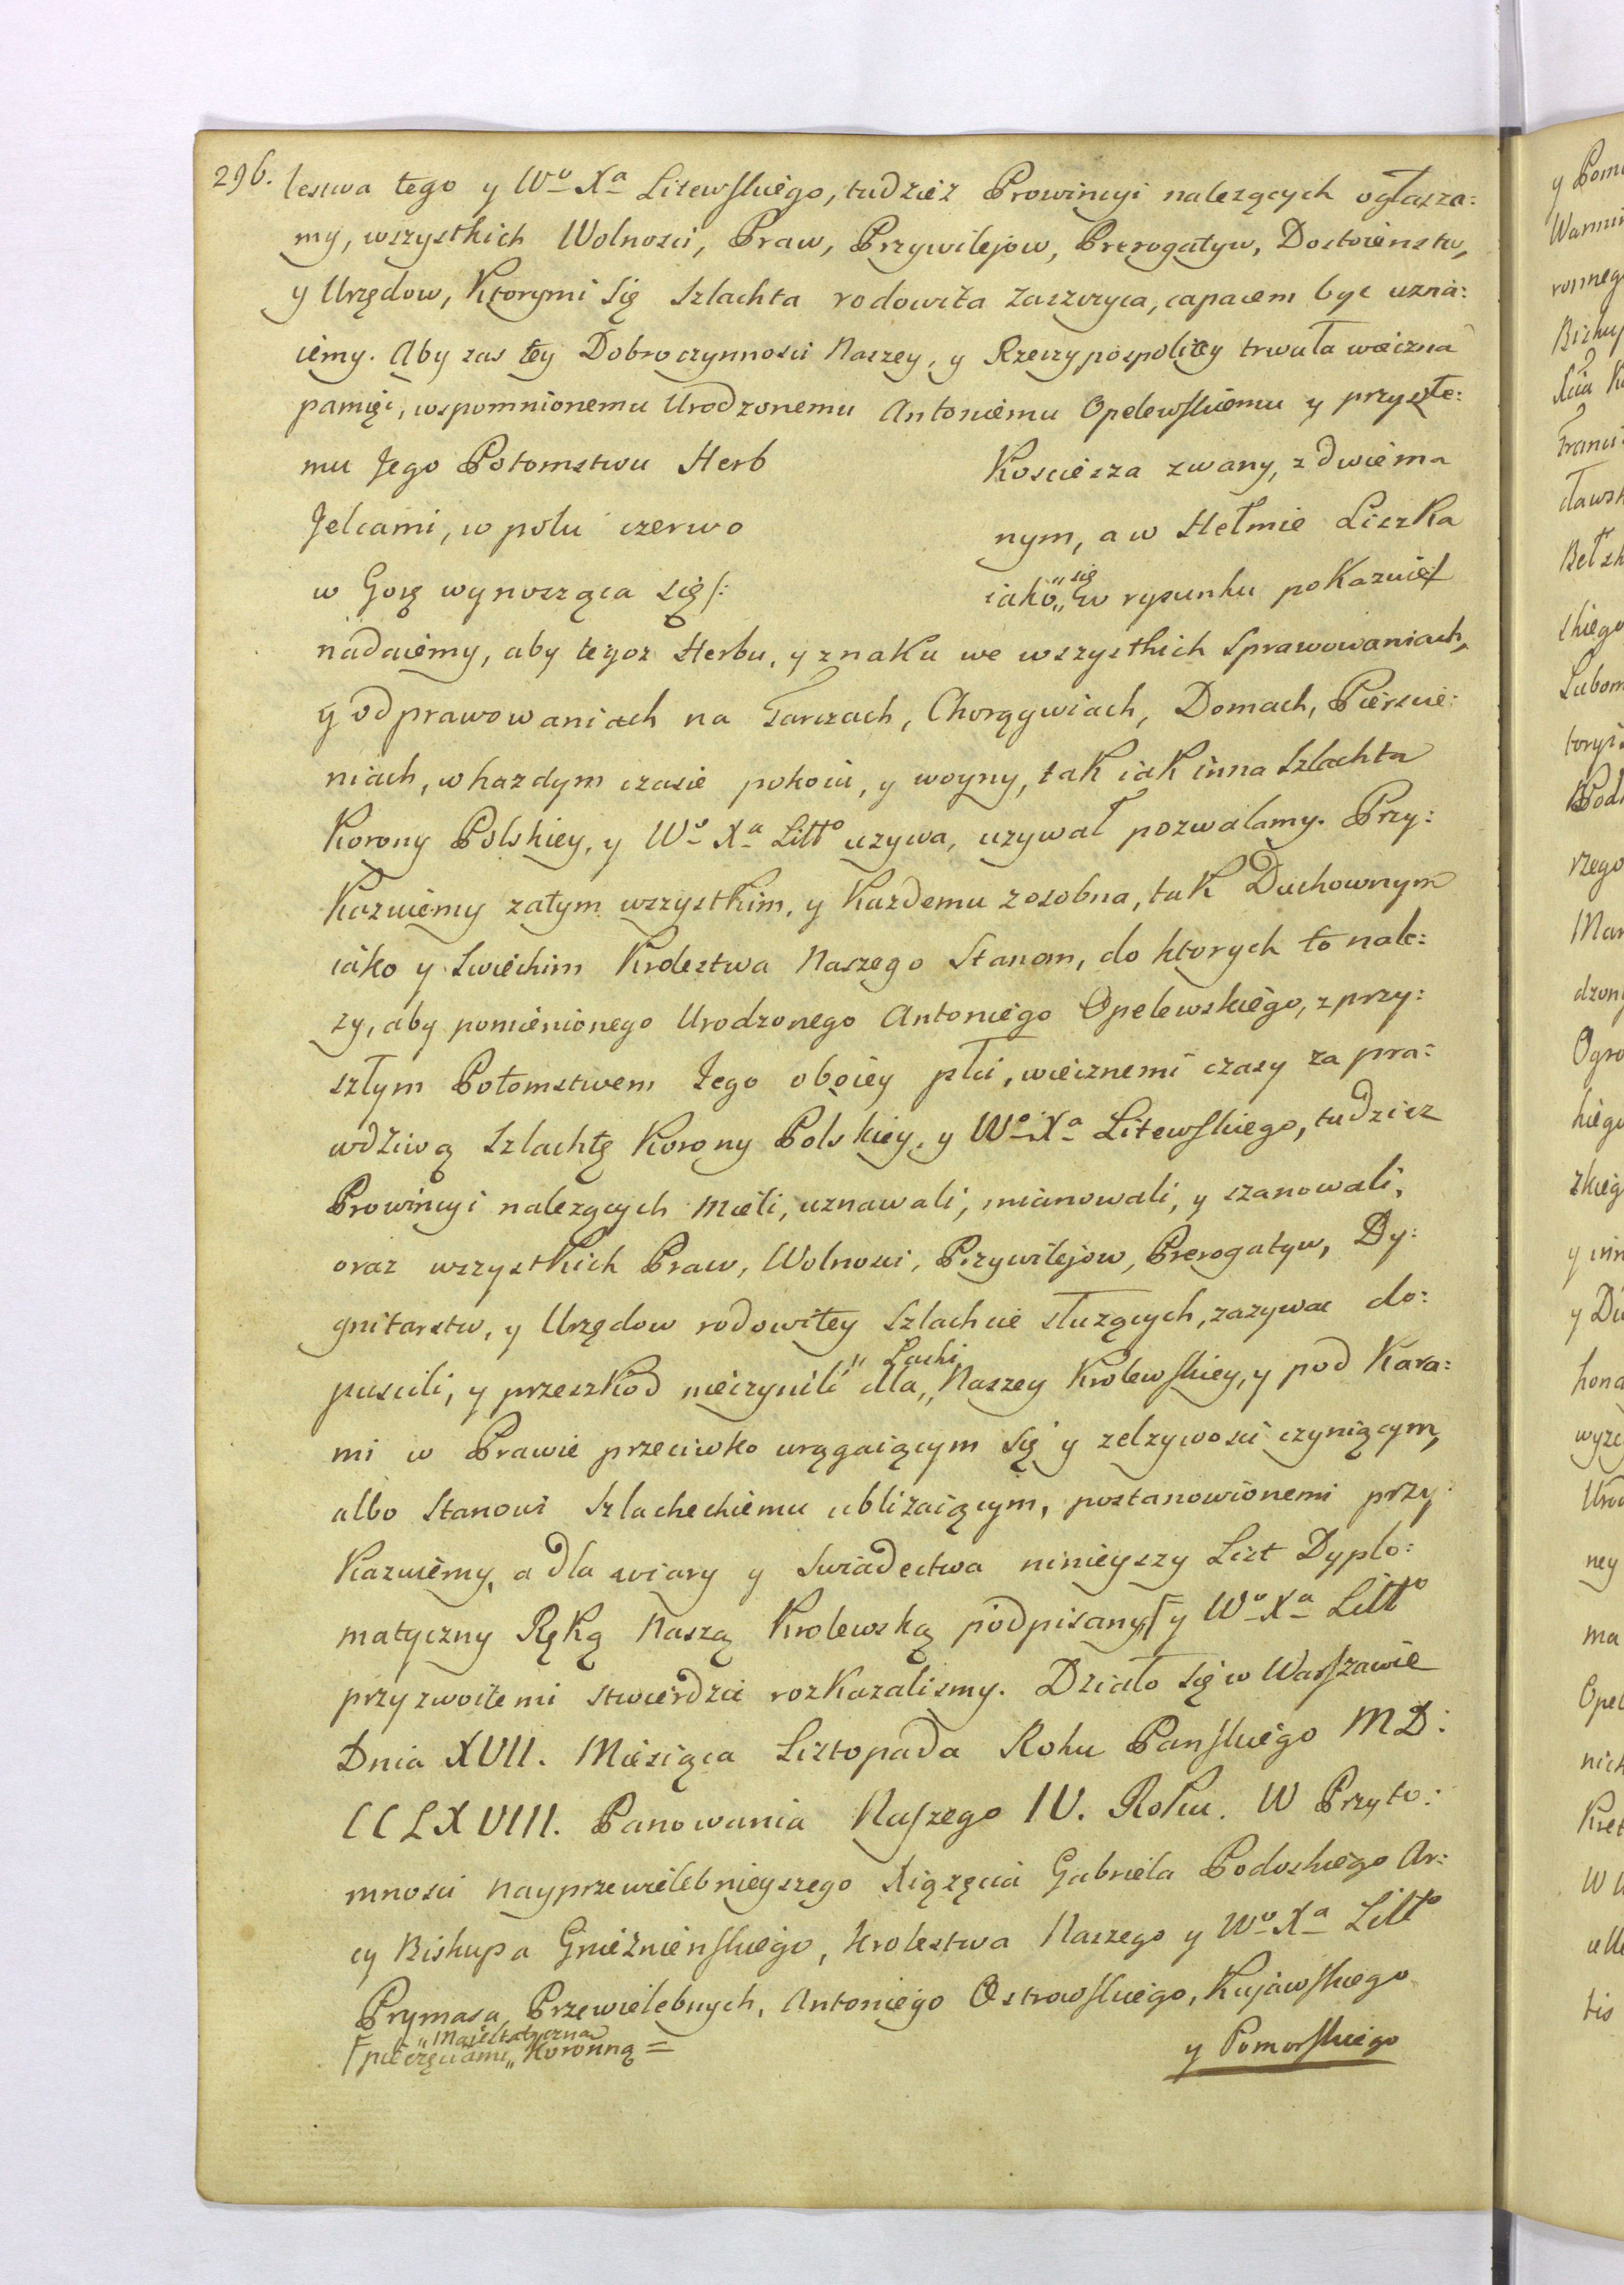 296. lestwa tego y Wº Xª Litewskiego, tudziez Prowincyi nalezących ogłasza:
my, wszystkich Wolnosci, Praw, Przywilejow, Prerogatyw, Dostoienstw,
y Urzędow, Ktorymi Się Szlachta rodowita zaszczyca, capacem byc uzna:
iemy. Aby zas tey Dobroczynnosci Naszey, y Rzeczypospolitey trwała wieczna
pamięc, wspomnionemu Urodzonemu Antoniemu Opelewskiemu y przyszłe:
mu Jego Potomstwu Herb Kosciesza zwany, z dwiema
Jelcami, w polu czerwo nym, a w Hełmie Liszka
w Gorę wynosząca się/: iako „się„ w rysunku poKazuie/
nadaiemy, aby tegoz Herbu, y znaKu we wszystkich Sprawowaniach,
y odprawowaniach na Tarczach, Chorągwiach, Domach, Pierscie:
niach, w kazdym czasie pokoiu, y woyny, taK iaK inna Szlachta
Korony Polskiey, y Wº Xª Littº uzywa, uzywał pozwalamy. Przy:
Kazuiemy zatym wszystkim, y Kazdemu zosobna, taK Duchownym
iako y Swieckim Krolestwa Naszego Stanom, do ktorych to nale:
zy, aby pomienionego Urodzonego Antoniego Opelewskiego, z przy:
szłym Potomstwem Jego oboiey płci, wiecznemi czasy za pra:
wdziwą Szlachtę Korony Polskiey, y Wº Xª Litewskiego, tudziez
Prowincyi nalezących mieli, uznawali, mianowali, y szanowali,
oraz wszystkich Praw, Wolnosci, Przywilejow, Prerogatyw, Dy:
gnitarstw, y Urzędow rodowitey Szlachcie słuzących, zazywac do:
puscili, y przeszKod nieczynili dla „Łaski„ Naszey Krolewskiey, y pod Kara:
mi w Prawie przeciwko urągaiącym Się y zelzywosci czyniącym,
albo Stanowi Szlacheckiemu ubliżaiącym, postanowionemi przy:
Kazuiemy, a dla wiary y Swiadectwa ninieyszy List Dyplo:
matyczny RęKą Naszą Krolewską podpisany/ y Wº Xª Littº
przyzwoitemi stwierdzic rozKazalismy. Działo Się w Warszawie
Dnia XVII. Miesiąca Listopada Roku Panskiego MD:
CCLXVIII. Panowania Naszego IV. RoKu. W Przyto:
mnosci Nayprzewielebnieyszego Xiązęcia Gabriela Podoskiego Ar:
cy Biskupa Gnieźnienskiego, Krolestwa Naszego y Wº Xª Littº
Prymasa, Przewielebnych, Antoniego Ostrowskiego, Kujawskiego
y Pomorskiego
/ pieczęciami „Maiestatyczna„ Koronną =